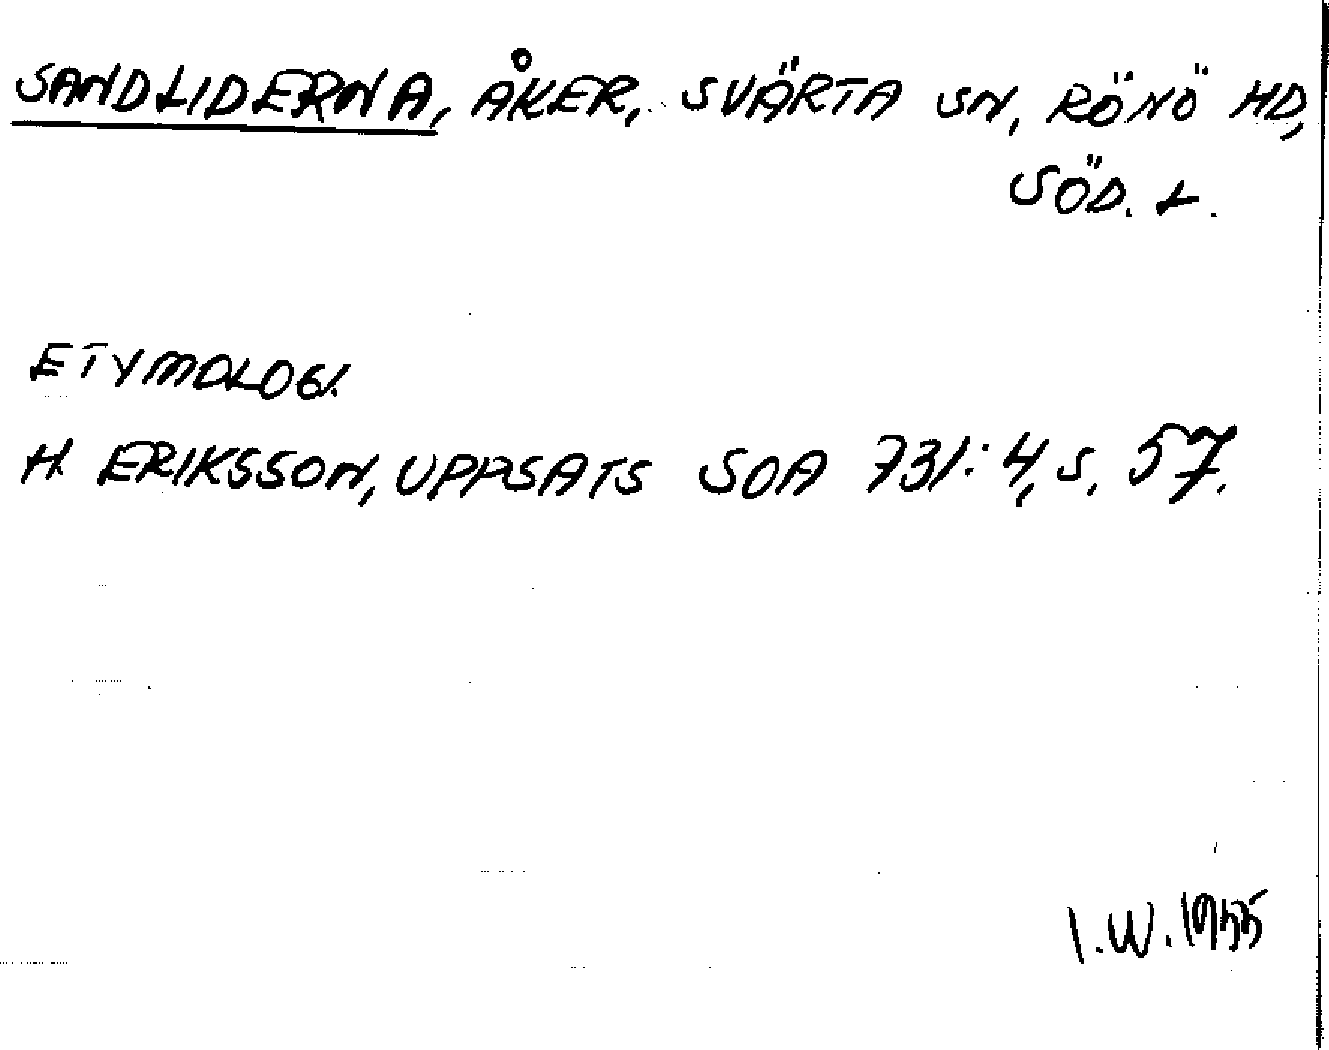 SANDLIDERNA, ÅKER, SVÄRTA SN, RÖNÖ HD,
SÖD. L.
ETYMOLOGI.
H. ERIKSSON, UPPSATS SOA 731:4, S. 57.
I.W. 1955